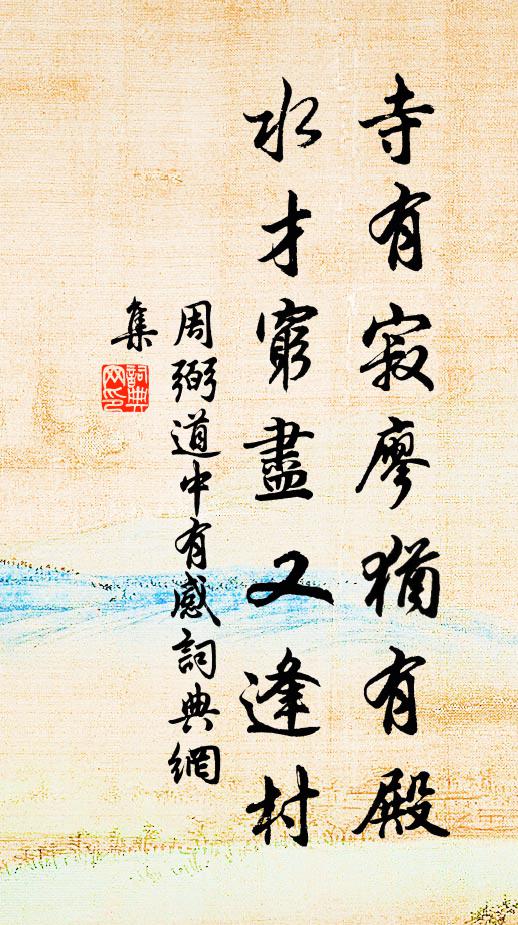 寺有寂廖猶有殿
水才窮盡又逢村
周弼道中有感詞典網
集
詞典
网印